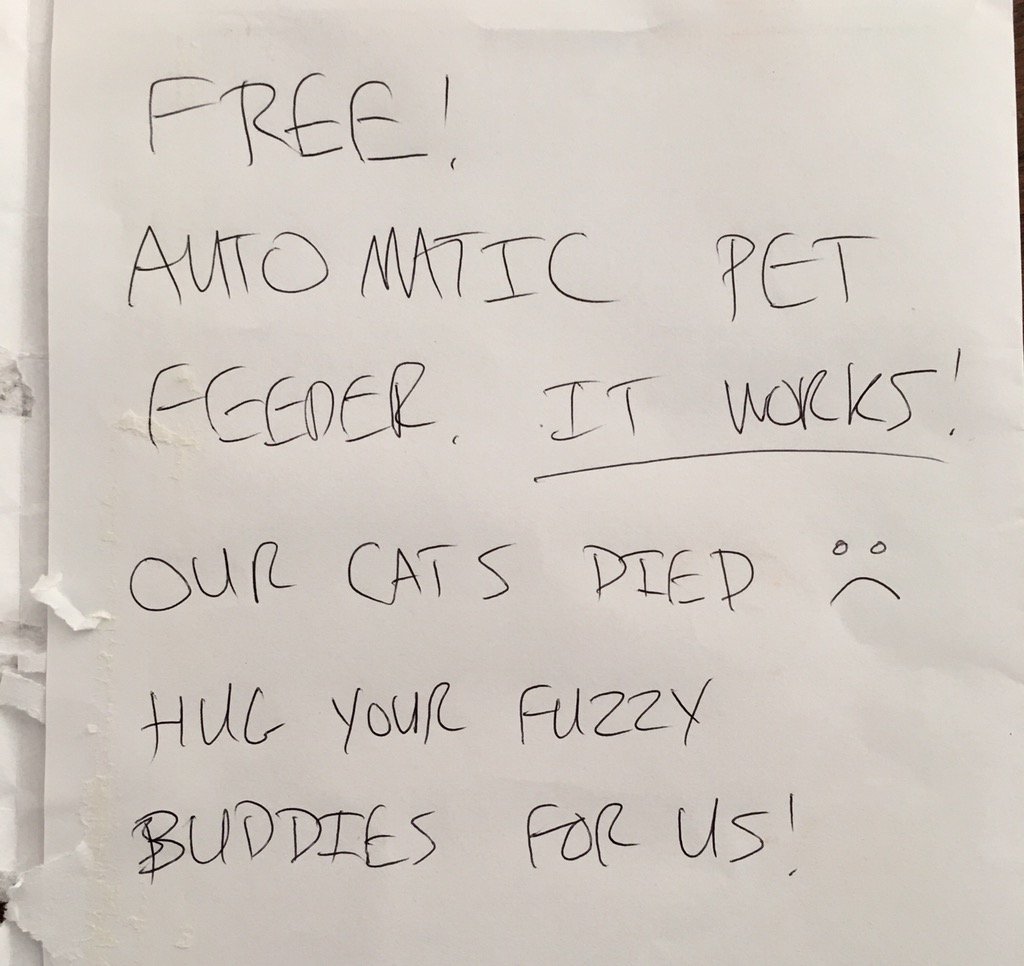 FREE!
AUTOMATIC PET
FEEDER. IT WORKS!
OUR CATS DIED ☹
HUG YOUR FUZZY
BUDDIES FOR US!